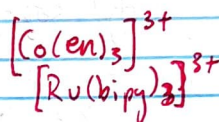 [Co(en)₃]³⁺
[Ru(bipy)₃]³⁺